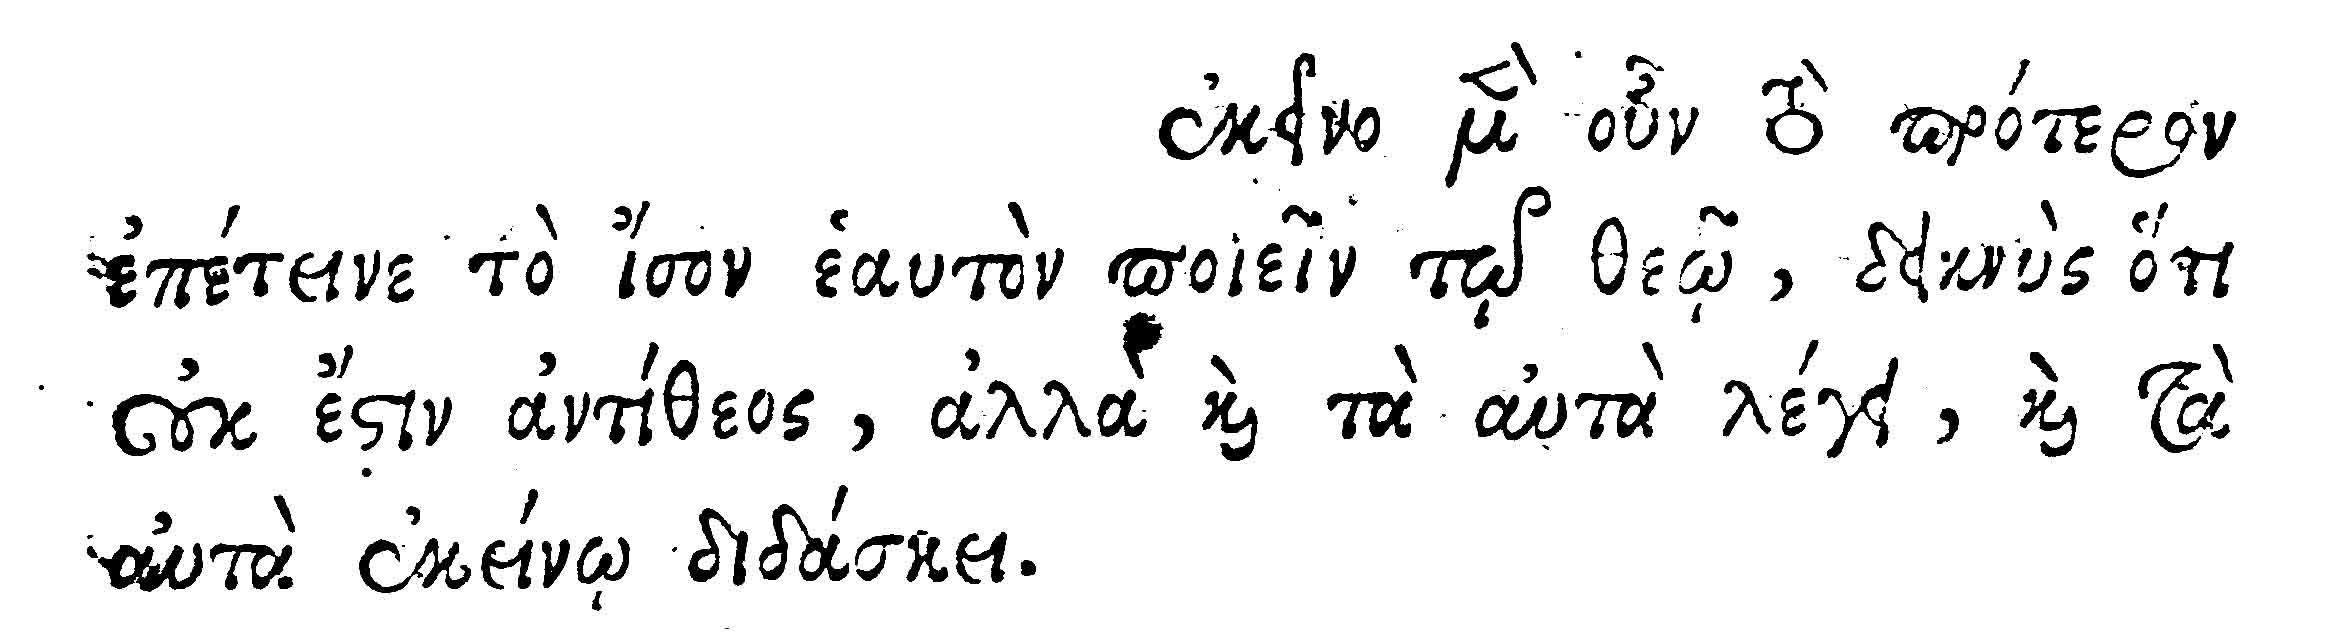 ἐκεῖνο μὲν οὖν τὸ πρότερον
ἐπέτεινε τὸ ἴσον ἑαυτὸν ποιεῖν τῷ θεῷ, δεικνὺς ὅτι
οὐκ ἔστιν ἀντίθεος, ἀλλὰ καὶ τὰ αὐτὰ λέγει, καὶ τὰ
αὐτὰ ἐκείνῳ διδάσκει.